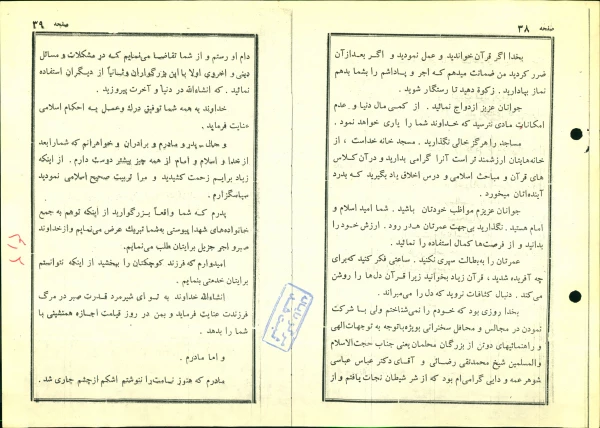 صفحه ۳۸
بخدا اگر قرآن خواندید و عمل نمودید و اگر بعد از آن
ضرر کردید من ضمانت میدهم که اجر و پاداشم را بشما بدهم
نماز بپادارید . زکوة دهید تا رستگار شوید .
جوانان عزیز ازدواج نمائید . از کمی مال دنیا و عدم
امکانات مادی نترسید که خداوند شما را یاری خواهد نمود .
مساجد را هرگز خالی نگذارید . مسجد خانه خداست ، از
خانه‌هایتان ارزشمند تر است آنرا گرامی بدارید و در آن کلاس
های قرآن و مباحث اسلامی و درس اخلاق یاد بگیرید که بدرد
آینده‌اتان میخورد .
جوانان عزیزم مواظب خودتان باشید . شما امید اسلام و
امام هستید . نگذارید بی‌جهت عمرتان هدر رود . ارزش خود را
بدانید و از فرصت‌ها کمال استفاده را نمائید .
عمرتان را به بطالت سپری نکنید . ساعتی فکر کنید که برای
چه آفریده شدید ، قرآن زیاد بخوانید زیرا قرآن دل‌ها را روشن
می‌کند . دنبال کثافات نروید که دل را می‌برد .
بخدا روزی بود که خودم را نمی‌شناختم ولی با شرکت
نمودن در مجالس و محافل سخنرانی بویژه با توجه به توجهات الهی
و راهنمائیهای دوتن از بزرگان محلمان یعنی جناب حجت‌الاسلام
والمسلمین شیخ محمدتقی رضائی و آقای دکتر عباس عباسی
شوهر عمه و دایی گرامی‌ام بود که از شر شیطان نجات یافتم و از
صفحه ۳۹
دام او رستم و از شما تقاضا می‌نمایم که در مشکلات و مسائل
دینی و اخروی اولا با این بزرگواران و ثانیاً از دیگران استفاده
نمائید . که انشاءالله در دنیا و آخرت پیروزید .
خداوند به همه شما توفیق درک و عمل به احکام اسلامی
عنایت فرماید .
و حال ـ پدر و مادرم و برادران و خواهرانم که شما را بعد
از خدا و اسلام و امام از همه چیز بیشتر دوست دارم . از اینکه
زیاد برایم زحمت کشیدید و مرا تربیت صحیح اسلامی نمودید
سپاسگزارم .
پدرم که شما واقعاً بزرگوارید از اینکه توهم به جمع
خانواده‌های شهدا پیوستی به شما تبریک عرض می‌نمایم و از خداوند
صبر و اجر جزیل برایتان طلب می‌نمایم .
امیدوارم که فرزند کوچکتان را ببخشید از اینکه نتوانستم
برایتان خدمتی بنمایم .
انشاءالله خداوند به تو ای شیرمرد قدرت صبر در مرگ
فرزندت عنایت فرماید و بمن در روز قیامت اجازه همنشینی با
شما را بدهد .
و اما مادرم .
مادرم که هنوز نامت را ننوشتم اشکم از چشم جاری شد .